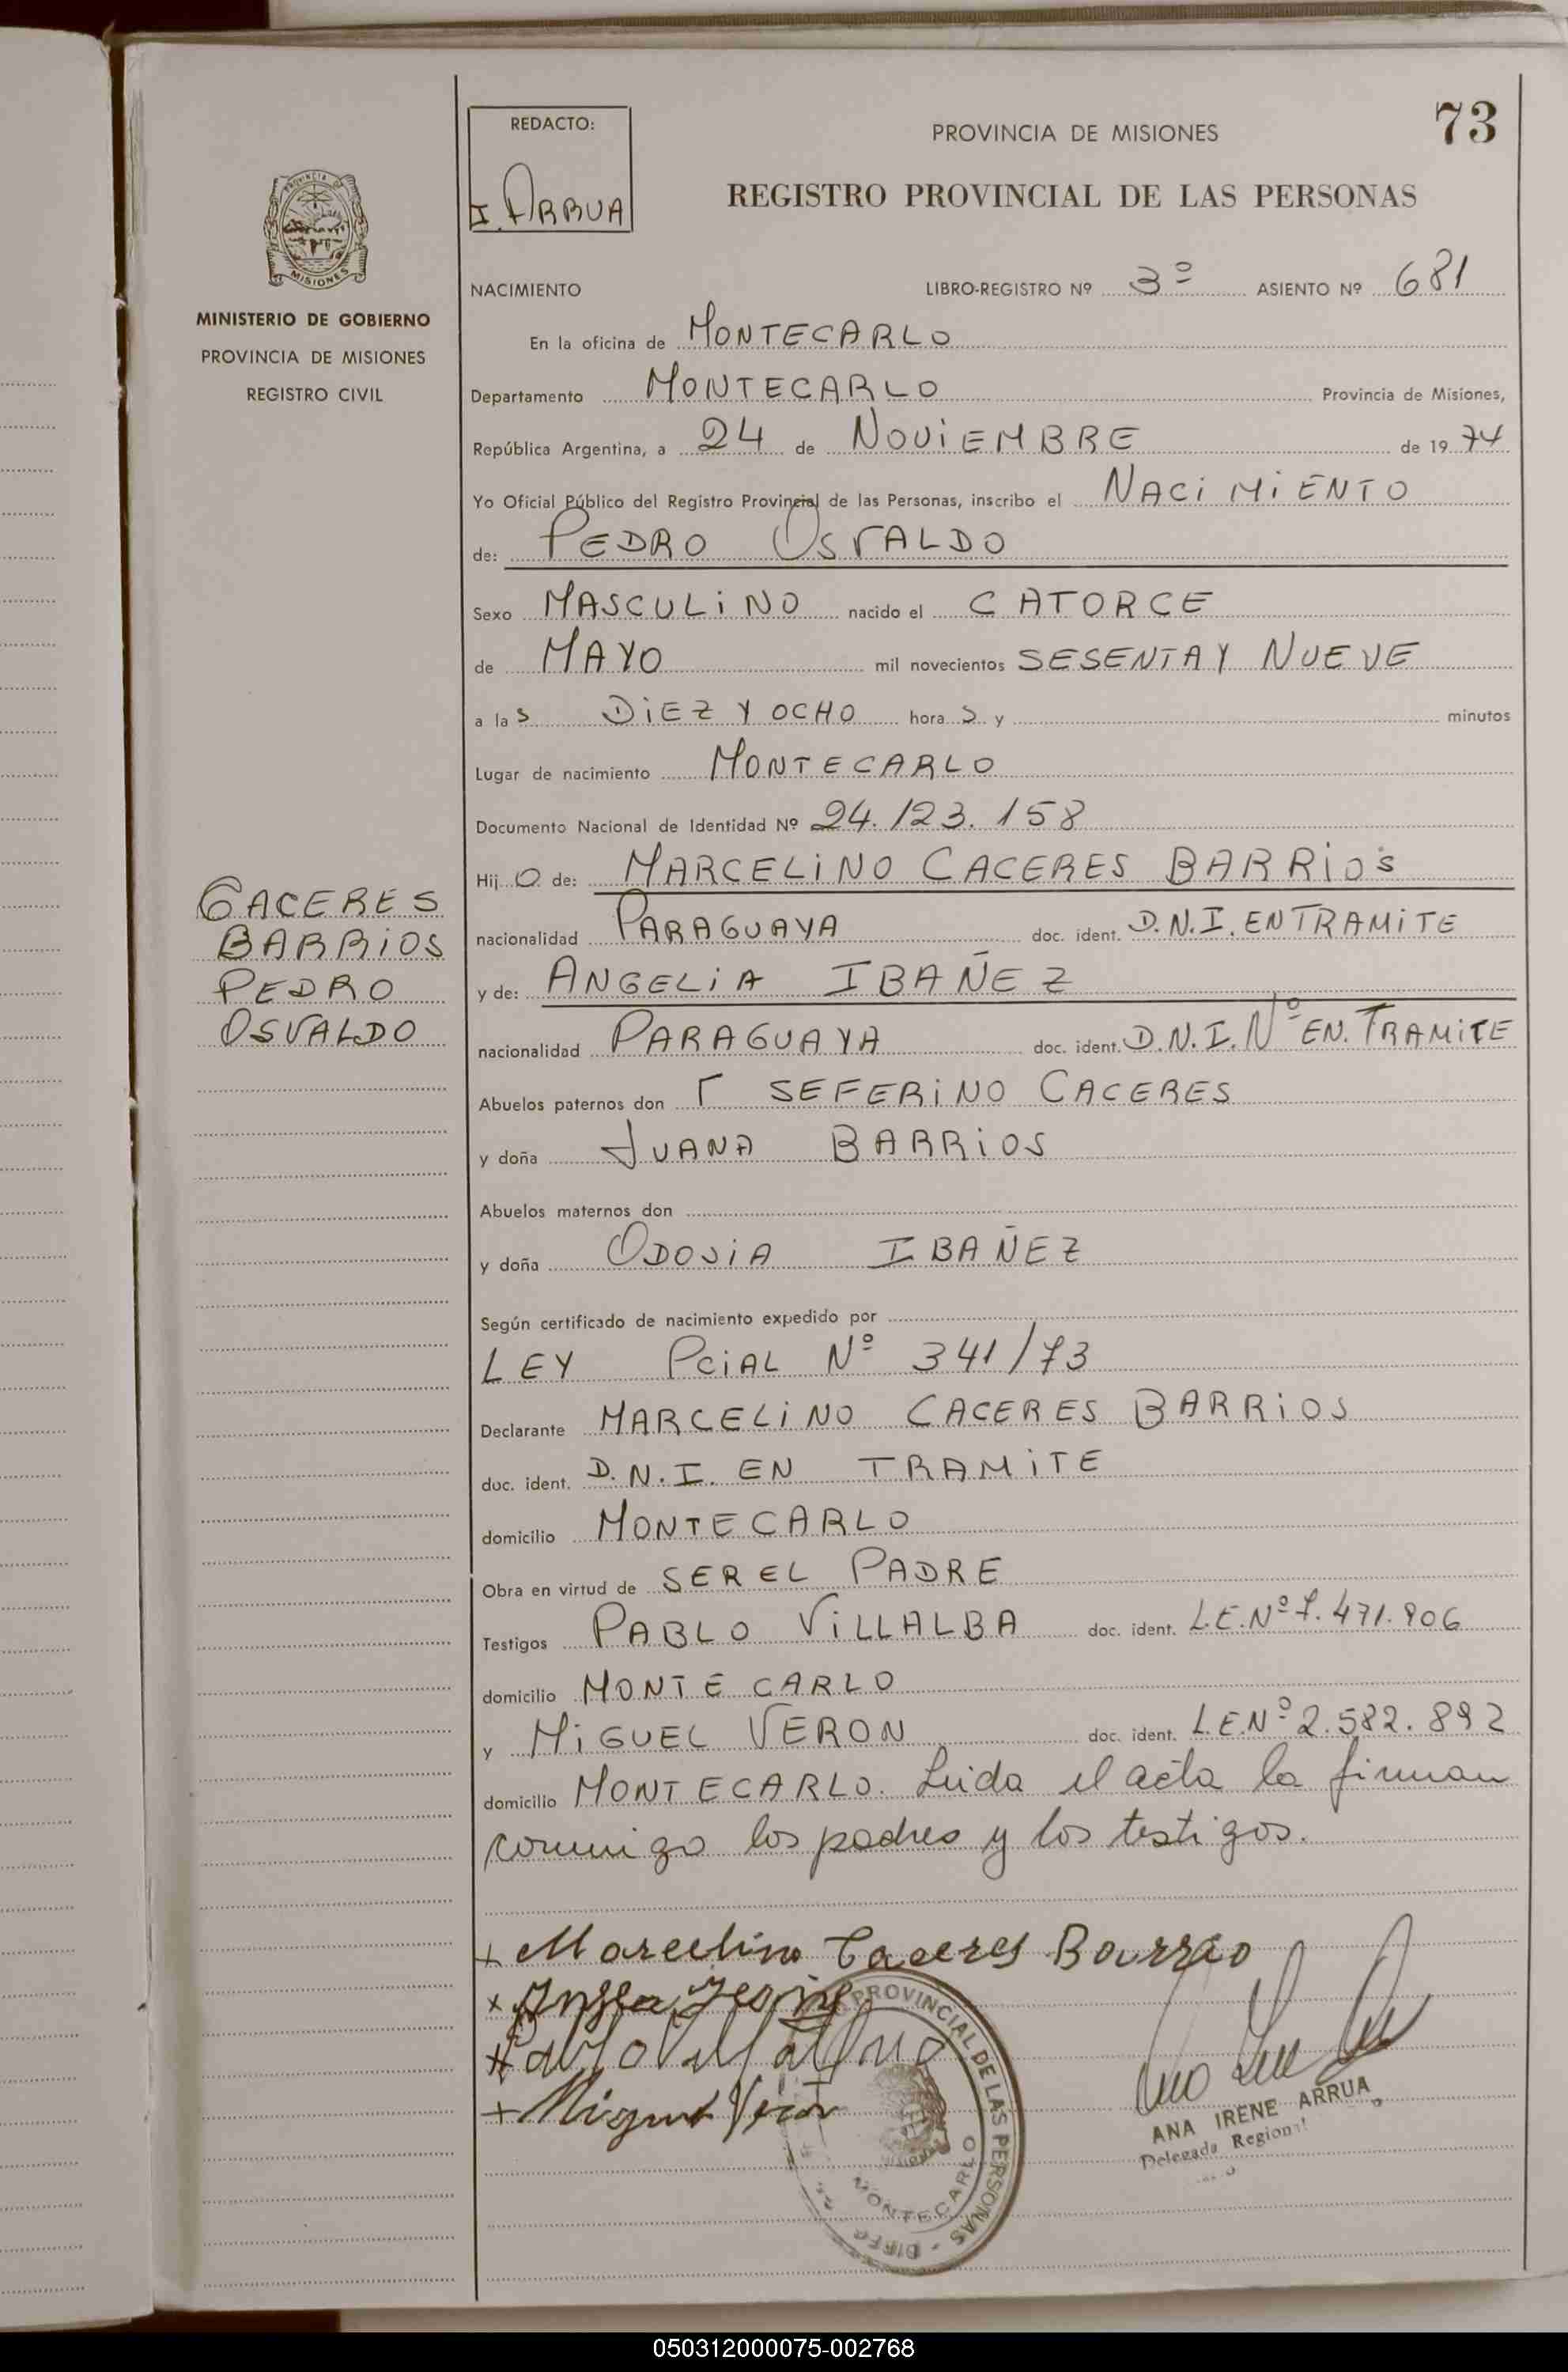 73
REDACTO:
I. ARRUA
PROVINCIA DE MISIONES
REGISTRO PROVINCIAL DE LAS PERSONAS
MISIONES
MINISTERIO DE GOBIERNO
PROVINCIA DE MISIONES
REGISTRO CIVIL
NACIMIENTO LIBRO-REGISTRO Nº 3º ASIENTO Nº 681
En la oficina de MONTECARLO
Departamento MONTECARLO Provincia de Misiones,
República Argentina, a 24 de NOVIEMBRE de 1974
Yo Oficial Público del Registro Provincial de las Personas, inscribo el NACIMIENTO
de: PEDRO OSVALDO
Sexo MASCULINO nacido el CATORCE
de MAYO mil novecientos SESENTA Y NUEVE
a las DIEZ Y OCHO horas y minutos
Lugar de nacimiento MONTECARLO
Documento Nacional de Identidad Nº 24.123.158
Hijo de: MARCELINO CACERES BARRIOS
CACERES
BARRIOS
PEDRO
OSVALDO
nacionalidad PARAGUAYA doc. ident. D.N.I. EN TRAMITE
y de: ANGELIA IBAÑEZ
nacionalidad PARAGUAYA doc. ident. D.N.I. Nº EN TRAMITE
Abuelos paternos don SEFERINO CACERES
y doña JUANA BARRIOS
Abuelos maternos don
y doña ODOSIA IBAÑEZ
Según certificado de nacimiento expedido por
LEY PCIAL Nº 341/73
Declarante MARCELINO CACERES BARRIOS
doc. ident. D.N.I. EN TRAMITE
domicilio MONTECARLO
Obra en virtud de SER EL PADRE
Testigos PABLO VILLALBA doc. ident. L.E. Nº 7.471.906
domicilio MONTECARLO
y MIGUEL VERON doc. ident. L.E. Nº 2.582.892
domicilio MONTECARLO. Leida el acta la firman
conmigo los padres y los testigos.
+ Marcelino Caceres Barrio
+ Pablo Villalba
+ Miguel Veron
PROVINCIAL DE LAS PERSONAS
MONTECARLO
ANA IRENE ARRUA
Delegada Regional
050312000075-002768